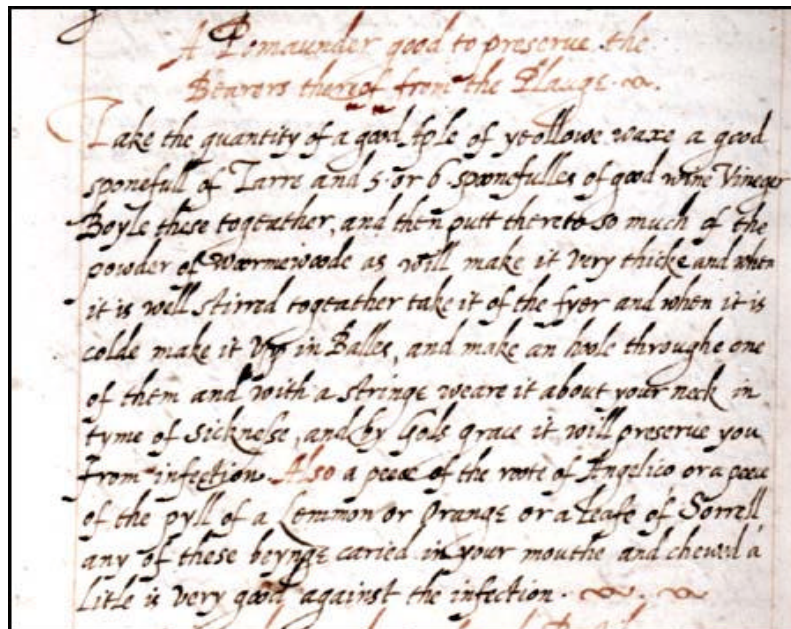 A Pomaunder good to preserve the
Bearers thereof from the Plauge
Take the quantity of a good Aple of yeollowe waxe a good
sponefull of Tarre and 5 or 6 spoonefulles of good wine Vineger
Boyle these togeather, and then putt thereto so much of the
powder of Woormewoode as will make it very thicke and when
it is well stirred togeather take it of the fyer and when it is
colde make it Vpp in Balles, and make an hoole throughe one
of them and with a stringe weare it about your neck in
tyme of Sicknesse, and by Gods grace it will preserve you
from infection. Also a peece of the roote of Angelico or a peece
of the pyll of a Lemmon or Orange or a leafe of Sorrell,
any of these beynge caried in your mouthe and chewed a
litle is very good against the infection.